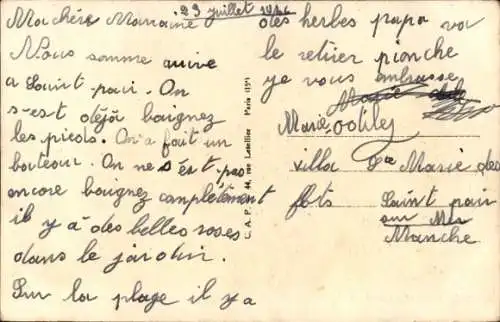 23 juillet
Ma chère Marraine
Nous somme arrivé
a Saint-pair. On
s-est déjà baignez
les pieds. On a fait un
bouteau. On ne s'est pas
ancore baignez complètement
il y a des belles roses
dans le jardin.
Sur la plage il y a
des herbes papa va
le retirer pionche
je vous embrasse
Marie-Odile
villa Ste Marie des
flots Saint pair
sur Mer
Manche
C.A.P. 44, rue Letellier Paris (15e)